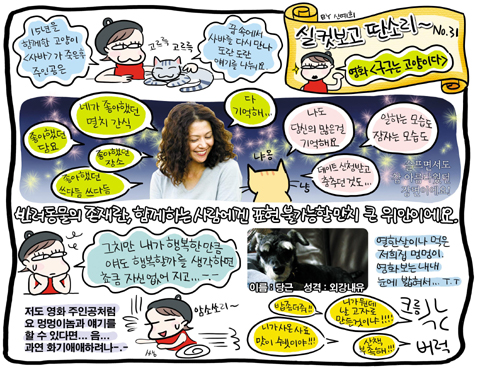 BY 신예희
실컷보고 딴소리~ No.31
영화 <구구는 고양이다>
15년을
함께한 고양이
<사바>가 죽은후
주인공은
고르륵 고르륵
꿈 속에서
사바를 다시 만나
도란도란
얘기를 나눠요
네가 좋아했던
멸치 간식
다
기억해...
좋아했던
담요
좋아했던
장소
좋아했던
쓰다듬 쓰다듬
나도
당신의 많은걸
기억해요
앓하는 모습도
잠자는 모습도
냐옹
냥
데이트 신청받고
춤추던 것도...
슬프면서도
참 아름다웠던
장면이에요
반려동물의 존재란, 함께하는 사람에겐 표현 불가능할만치 큰 위안이에요.
그치만 내가 행복한만큼
얘도 행복할까를 생각하면
쵸큼 자신없어 지고...-.-
이름 : 당근 성격 : 외강내유
영화상이나 먹은
저희집 멍멍이.
영화보는내내
눈에 밟혀서... T.T
저도 영화 주인공처럼
요 멍멍이놈과 얘기를
할 수 있다면... 음...
과연 화기애애하려나-.-
암쏘쏘리~
밥좀더줘!!
니가뭔데
난 고자로
만든것이냐!!!!
니가사온 사료
맛이 쉣이야!!!
산책
부족해!!!
크릉
버럭